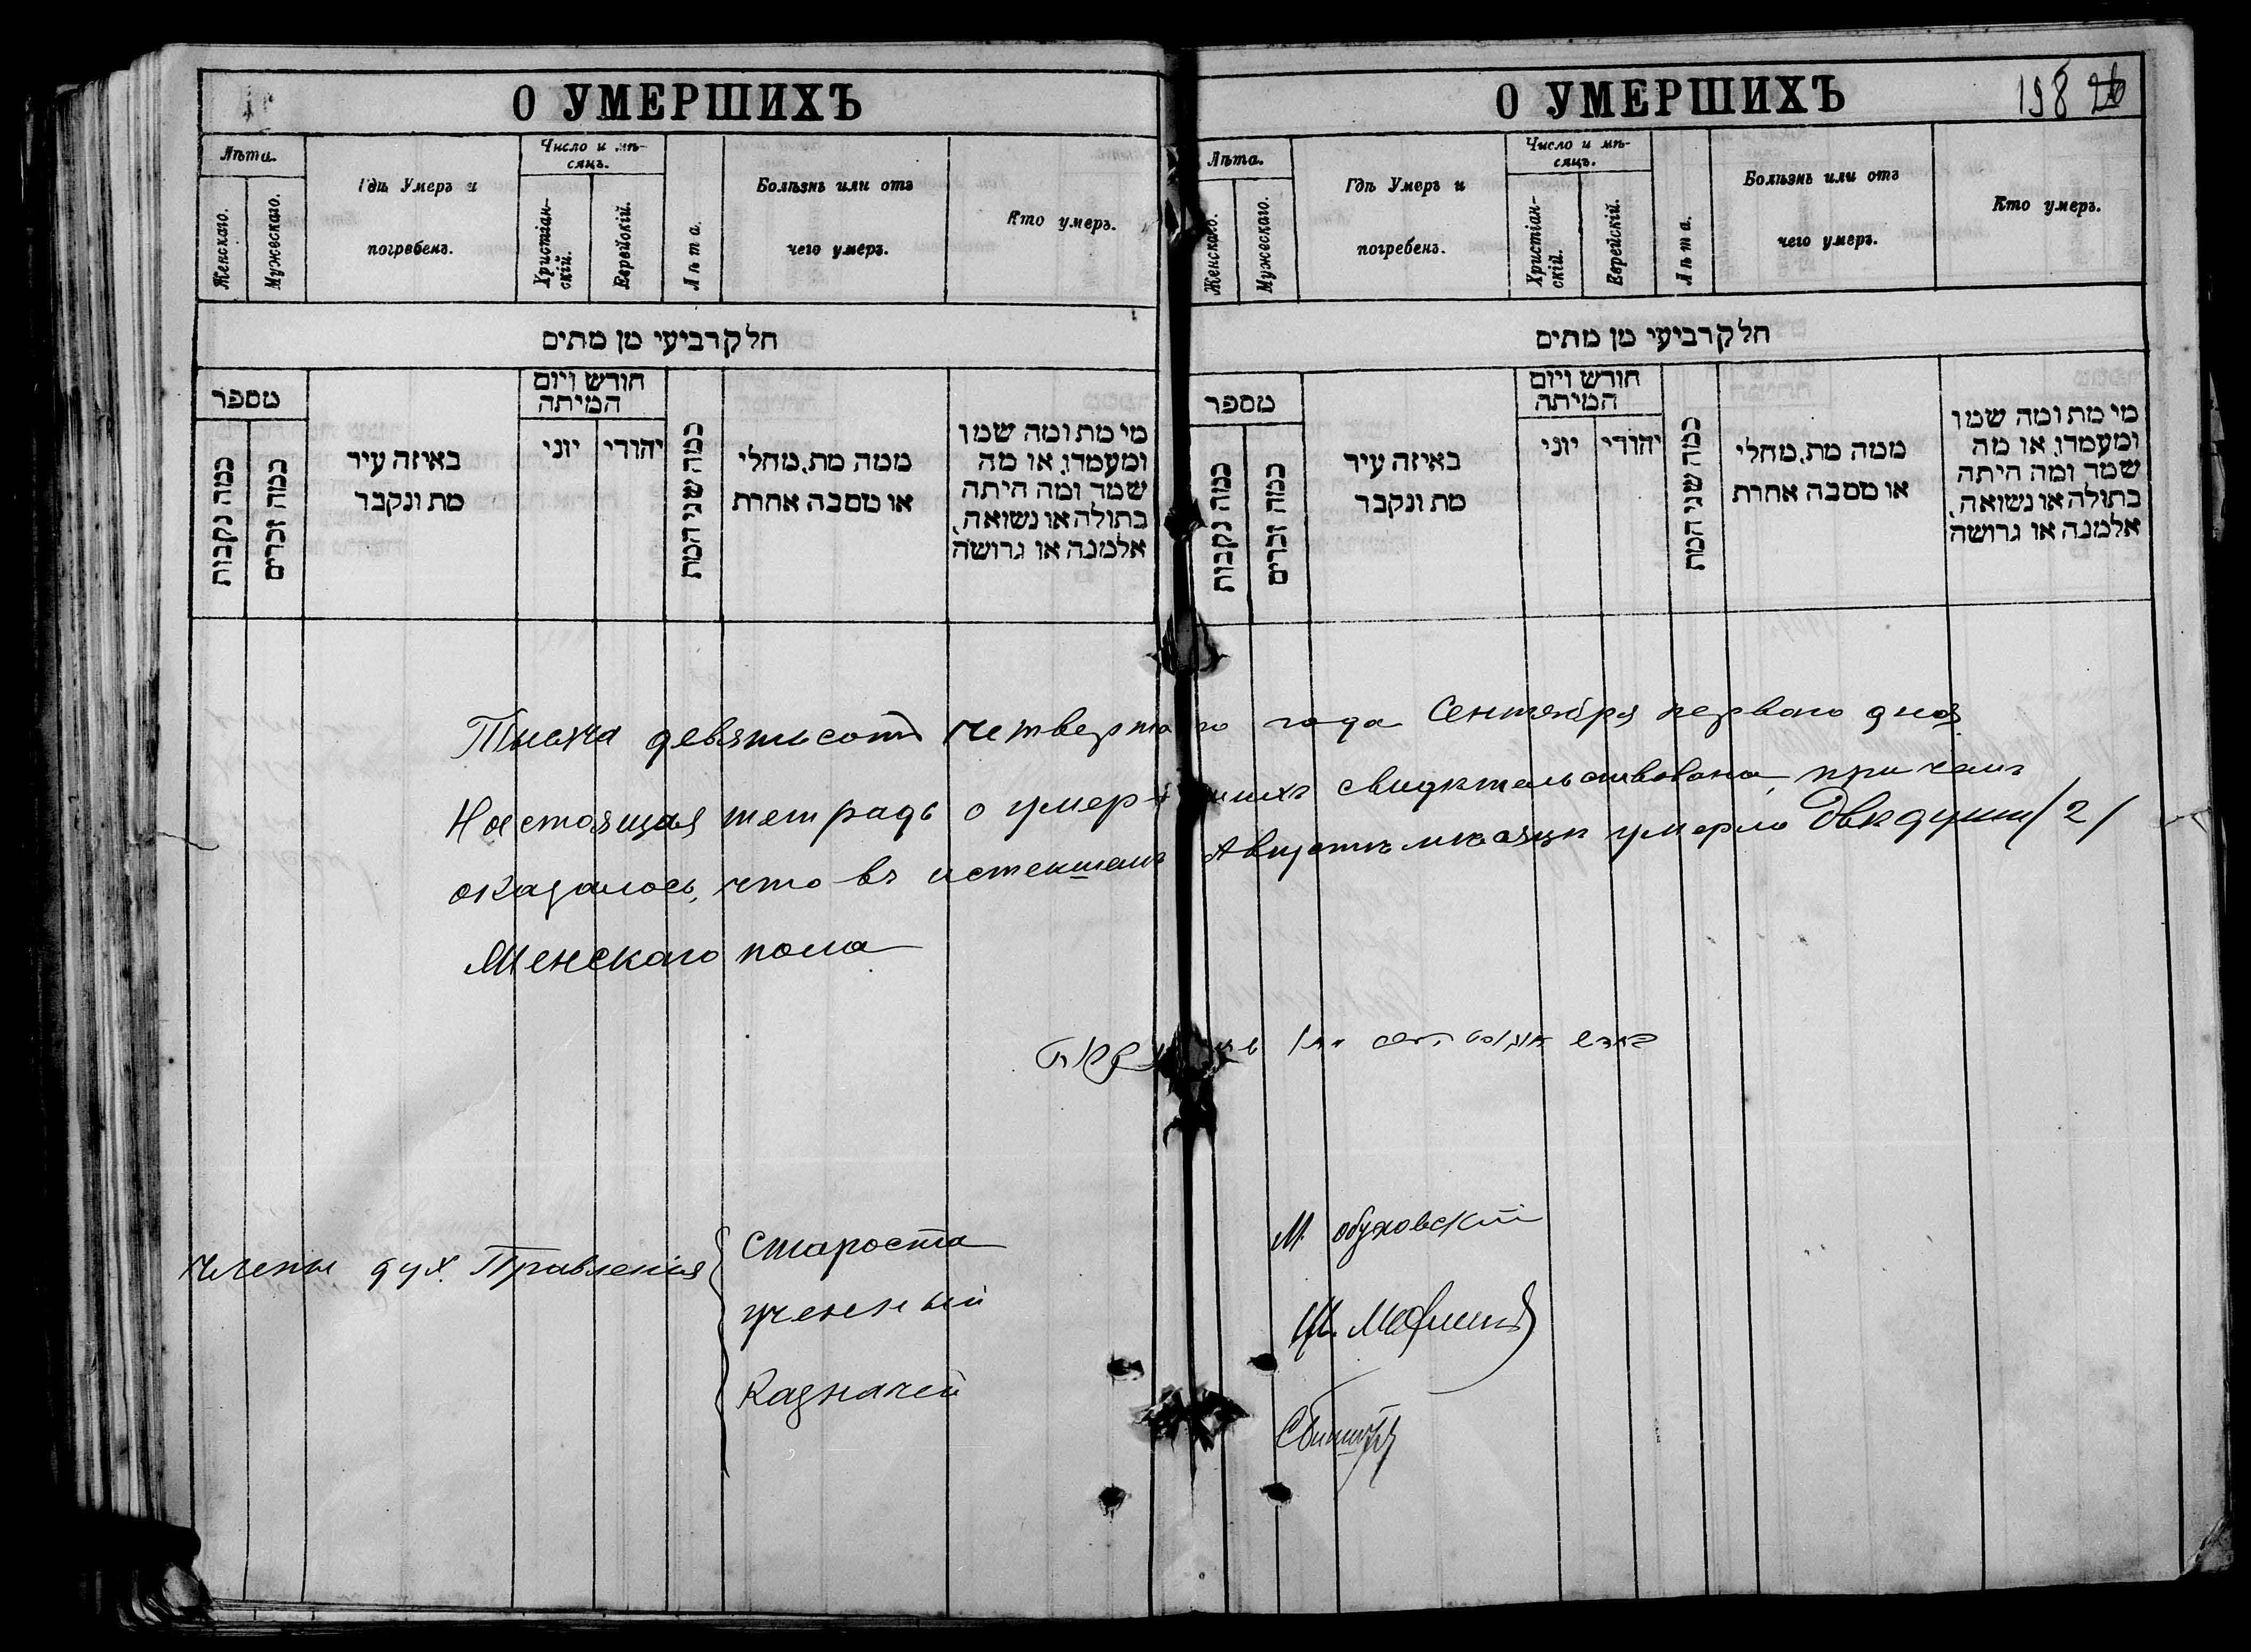 О УМЕРШИХЪ
Лѣта.
Женскаго.
Мужескаго.
Гдѣ Умеръ и
погребенъ.
Число и мѣ-
сяцъ.
Христіан-
скій.
Еврейскій.
Лѣта.
Болѣзнь или отъ
чего умеръ.
Кто умеръ.
חלק רביעי מן מתים
מספר
כמה נקבות
כמה זכרים
באיזה עיר
מת ונקבר
חורש ויום
המיתה
יוני
יהודי
כמה שני המת
ממה מת, מחלי
או מסבה אחרת
מי מת ומה שמו
ומעמדו, או מה
שמה ומה היתה
בתולה או נשואה,
אלמנה או גרושה
О УМЕРШИХЪ
198 26
Лѣта.
Женскаго.
Мужескаго.
Гдѣ Умеръ и
погребенъ.
Число и мѣ-
сяцъ.
Христіан-
скій.
Еврейскій.
Лѣта.
Болѣзнь или отъ
чего умеръ.
Кто умеръ.
חלק רביעי מן מתים
מספר
כמה נקבות
כמה זכרים
באיזה עיר
מת ונקבר
חורש ויום
המיתה
יוני
יהודי
כמה שני המת
ממה מת, מחלי
או מסבה אחרת
מי מת ומה שמו
ומעמדו, או מה
שמה ומה היתה
בתולה או נשואה,
אלמנה או גרושה
Тысяча девятьсотъ четвертаго года Сентября перваго дня
Настоящая тетрадь о умершихъ свидѣтельствована, при чемъ
оказалось, что въ истекшемъ Августѣ мѣсяцѣ умерло двѣ души /2/
Женскаго пола
Члены дух. Правленія
Староста М. Обуховскій
Ученый
Казначей